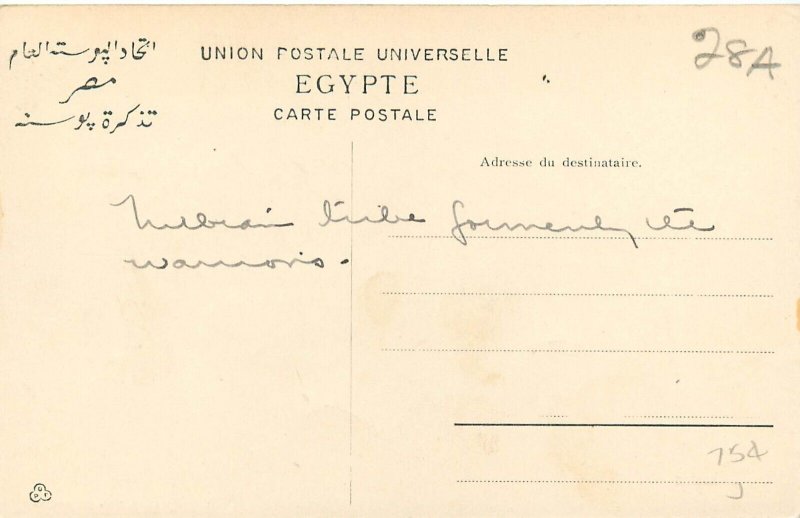 اتحاد البوسته العام
مصر
تذكرة بوسته
UNION POSTALE UNIVERSELLE
EGYPTE
CARTE POSTALE
28A
Adresse du destinataire.
tribe formerly
warriors.
754